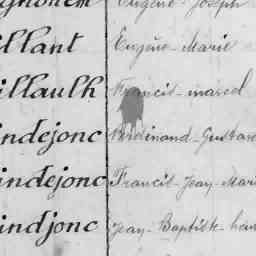 Eugène - Joseph
illant Eugène - Marie
illaulh Francis - marcel
indejonc Ferdinand - Gustave
indejonc Francis - Jean - Mari
indjonc Jean - Baptiste -